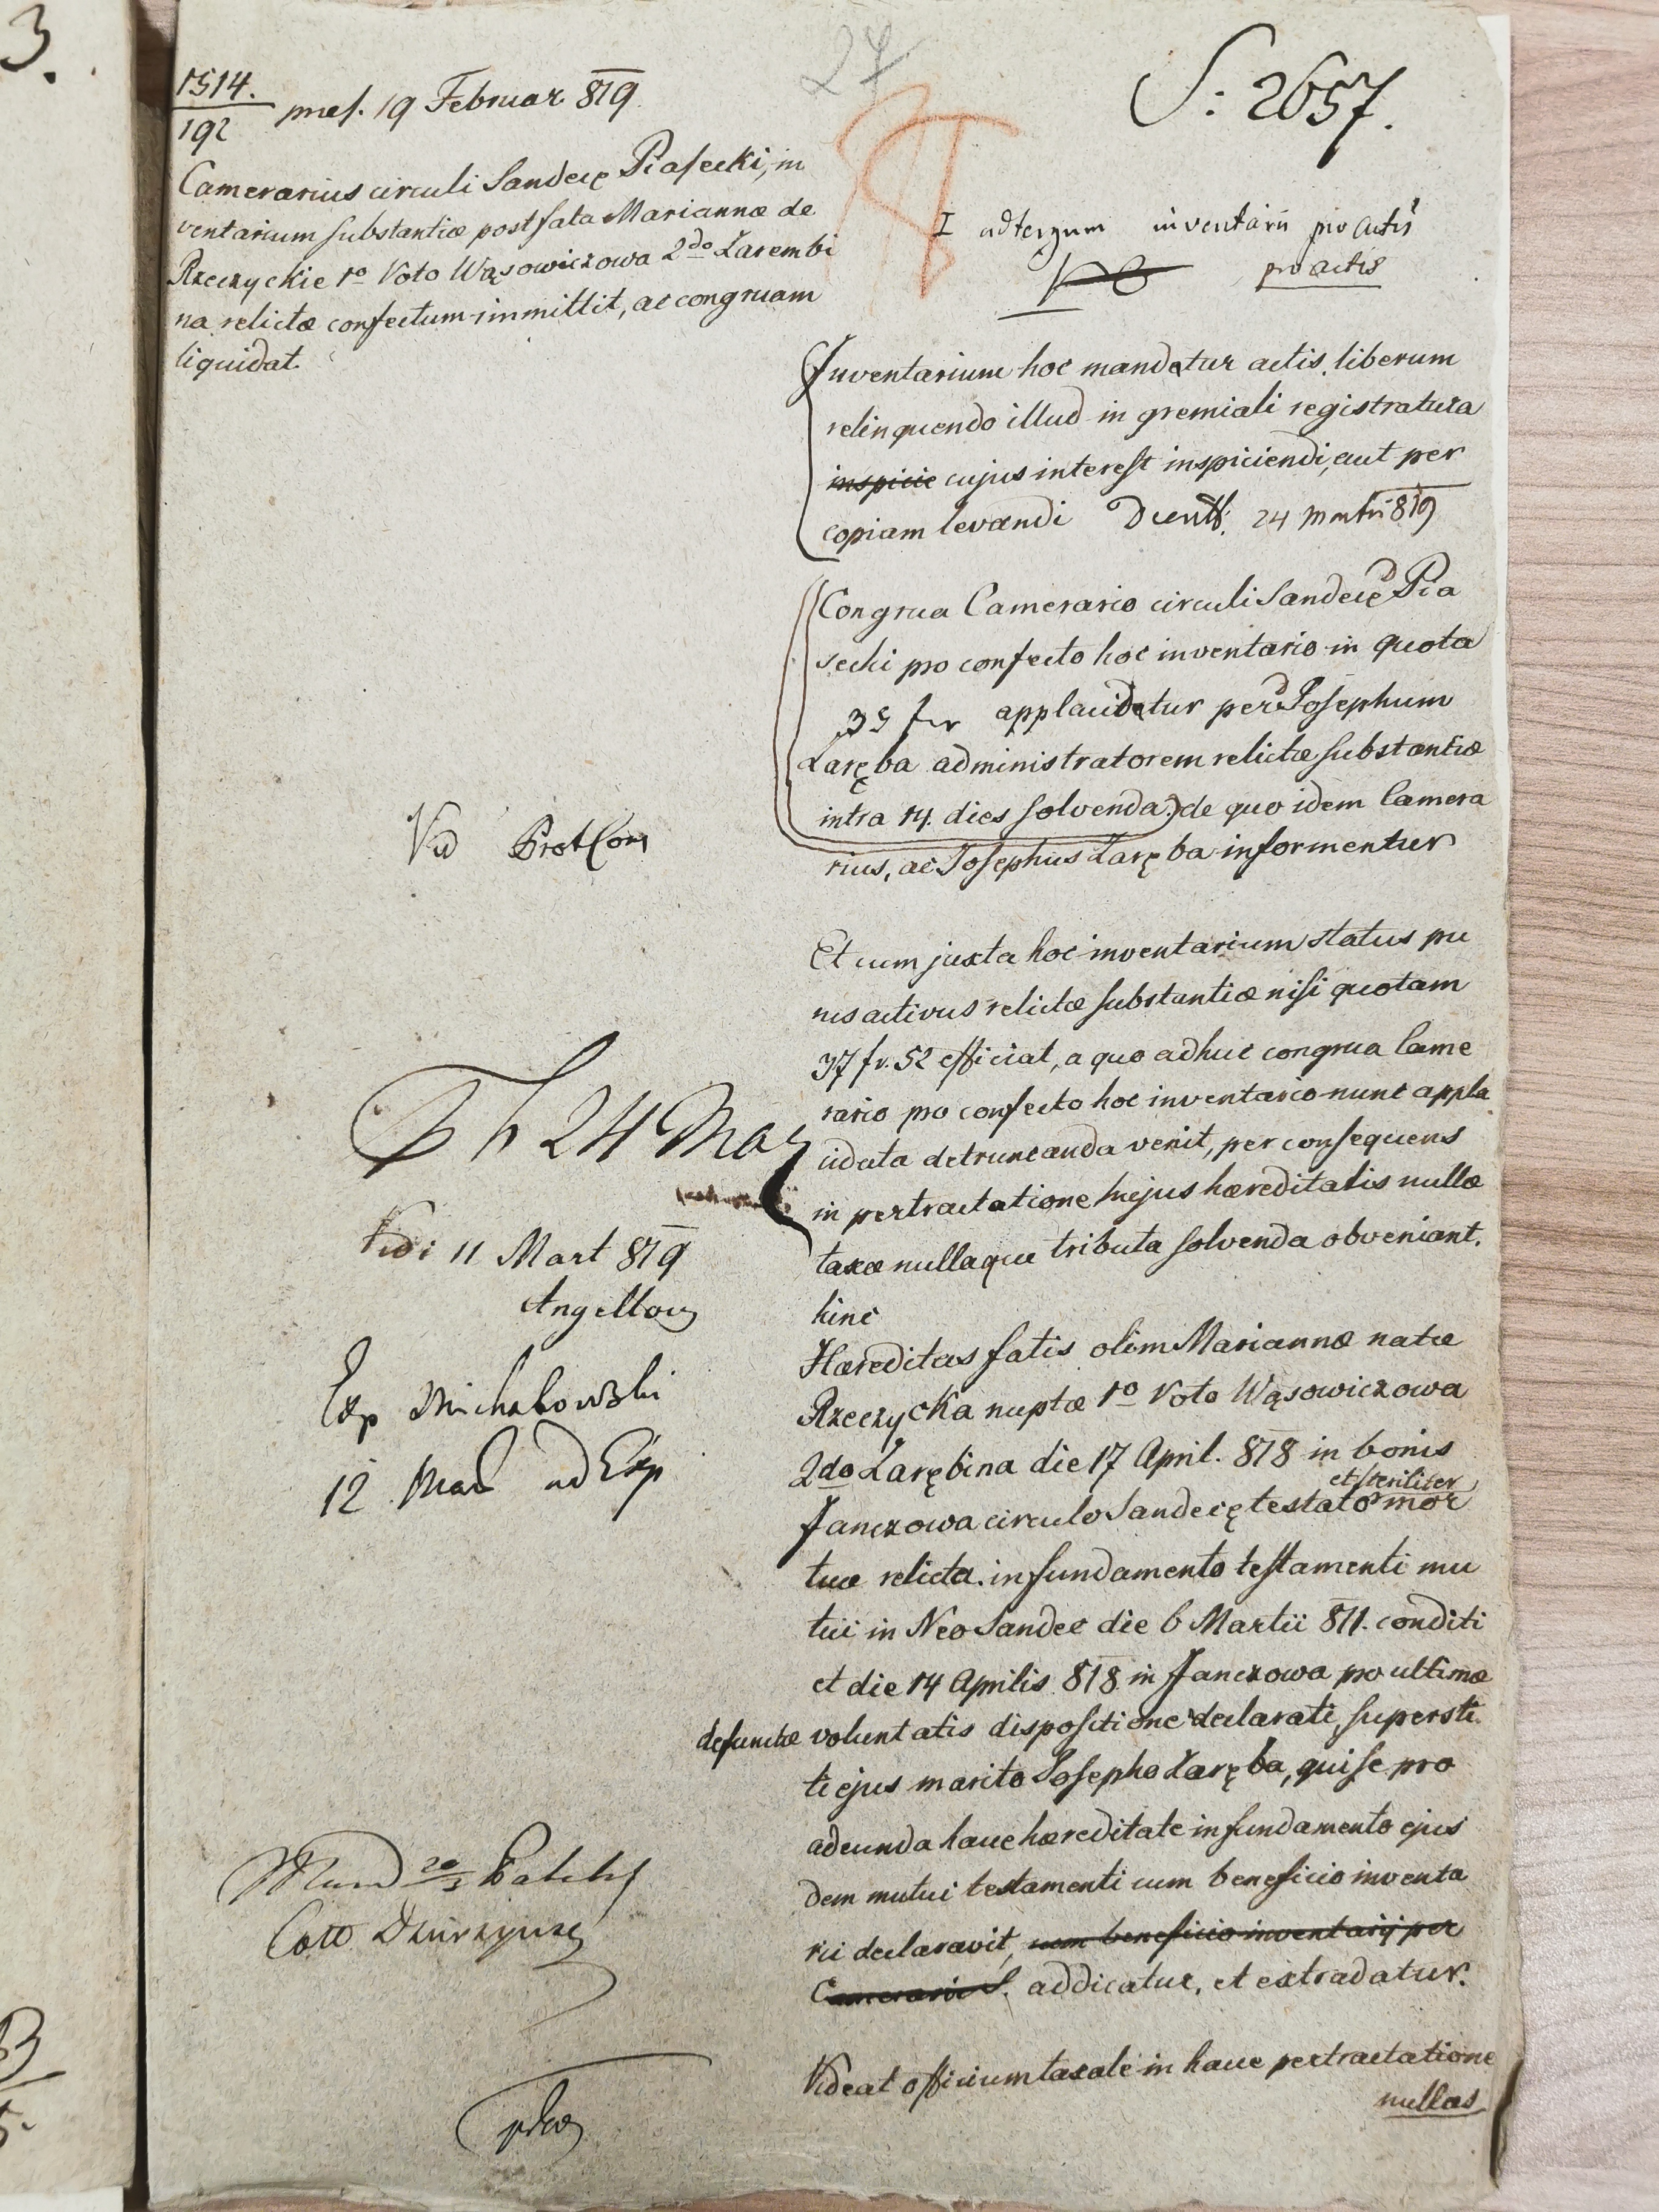 3.
27
1514.
192
præs. 19 Februar 819
S: 2657.
Camerarius circuli Sandecę Piasecki, in
ventarium substantiæ post fata Mariannæ de
Rzeczyckie 1o Voto Wąsowiczowa 2do Zarembi
na relictæ confectum immittit, ac congruam
liquidat.
I ad tergum inventarii pro actis
pro actis
Inventarium hoc mandetur actis, liberum
relinquendo illud in gremiali registratura
inspicie cujus interest inspiciendi, aut per
copiam levandi 24 Martii 819
Congrua Camerario circuli Sandecę D Pia
secki pro confecto hoc inventario in quota
35 fr applacidetur per D Josephum
Zaręba administratorem relictæ substantiæ
intra 14 dies solvenda. de quo idem Camera
rius, ac Josephus Zaręba informentur
Vid Prot Com
Et cum juxta hoc inventarium status pu
rus activus relictæ substantiæ nisi quotam
37 fr. 52 efficiat, a quo adhuc congrua Came
rario pro confecto hoc inventario nunc appla
cidata detruncanda venit, per consequens
in pertractatione hujus hæreditatis nullæ
taxæ nullaque tributa solvenda obveniant.
hinc
24 Mar
Vidi 11 Mart 819
Exp Michalowski
12 Mar ad Exp
Hæreditas fatis olim Mariannæ natæ
Rzeczycka nuptæ 1o Voto Wąsowiczowa
2do Zarębina die 17 April. 818 in bonis
Janczowa circulo Sandecę testato et steriliter mor
tuæ relicta. in fundamento testamenti mu
tui in Neo Sandec die 6 Martii 811. conditi
et die 14 Aprilis 818 in Janczowa pro ultimæ
defunctæ voluntatis dispositione declarati, supersti
ti ejus marito Josepho Zaręba, qui se pro
adeunda hacce hæreditate in fundamento ejus
dem mutui testamenti cum beneficio inventa
rii declaravit, cum beneficio inventarii per
Camerarii S. addicatur, et extradatur.
Mund 20/3
Videat officium taxale in hacce pertractatione
nullas